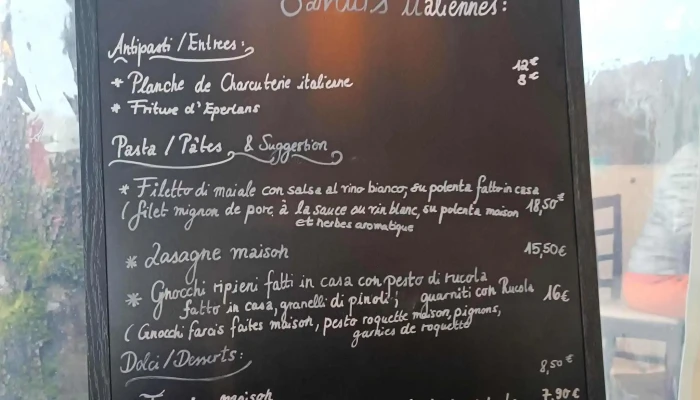 Italiennes:
Antipasti / Entrées:
* Planche de Charcuterie italienne 12€
* Friture d'Eperlans 8€
Pasta / Pâtes & Suggestion
* Filetto di maiale con salsa al vino bianco, su polenta fatto in casa
(filet mignon de porc à la sauce au vin blanc, su polenta maison 18,50€
et herbes aromatique
* Lasagne maison 15,50€
* Gnocchi ripieni fatti in casa con pesto di rucola
fatto in casa, granelli di pinoli; guarniti con Rucola 16€
(Gnocchi farcis faites maison, pesto roquette maison, pignons,
garnies de roquette
Dolci / Desserts:
8,50€
maison 7,90€